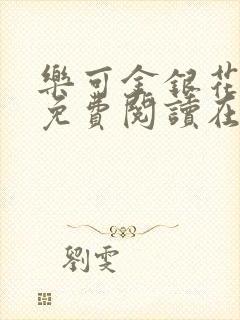 樂可金銀花
免費閱讀在
劉雯